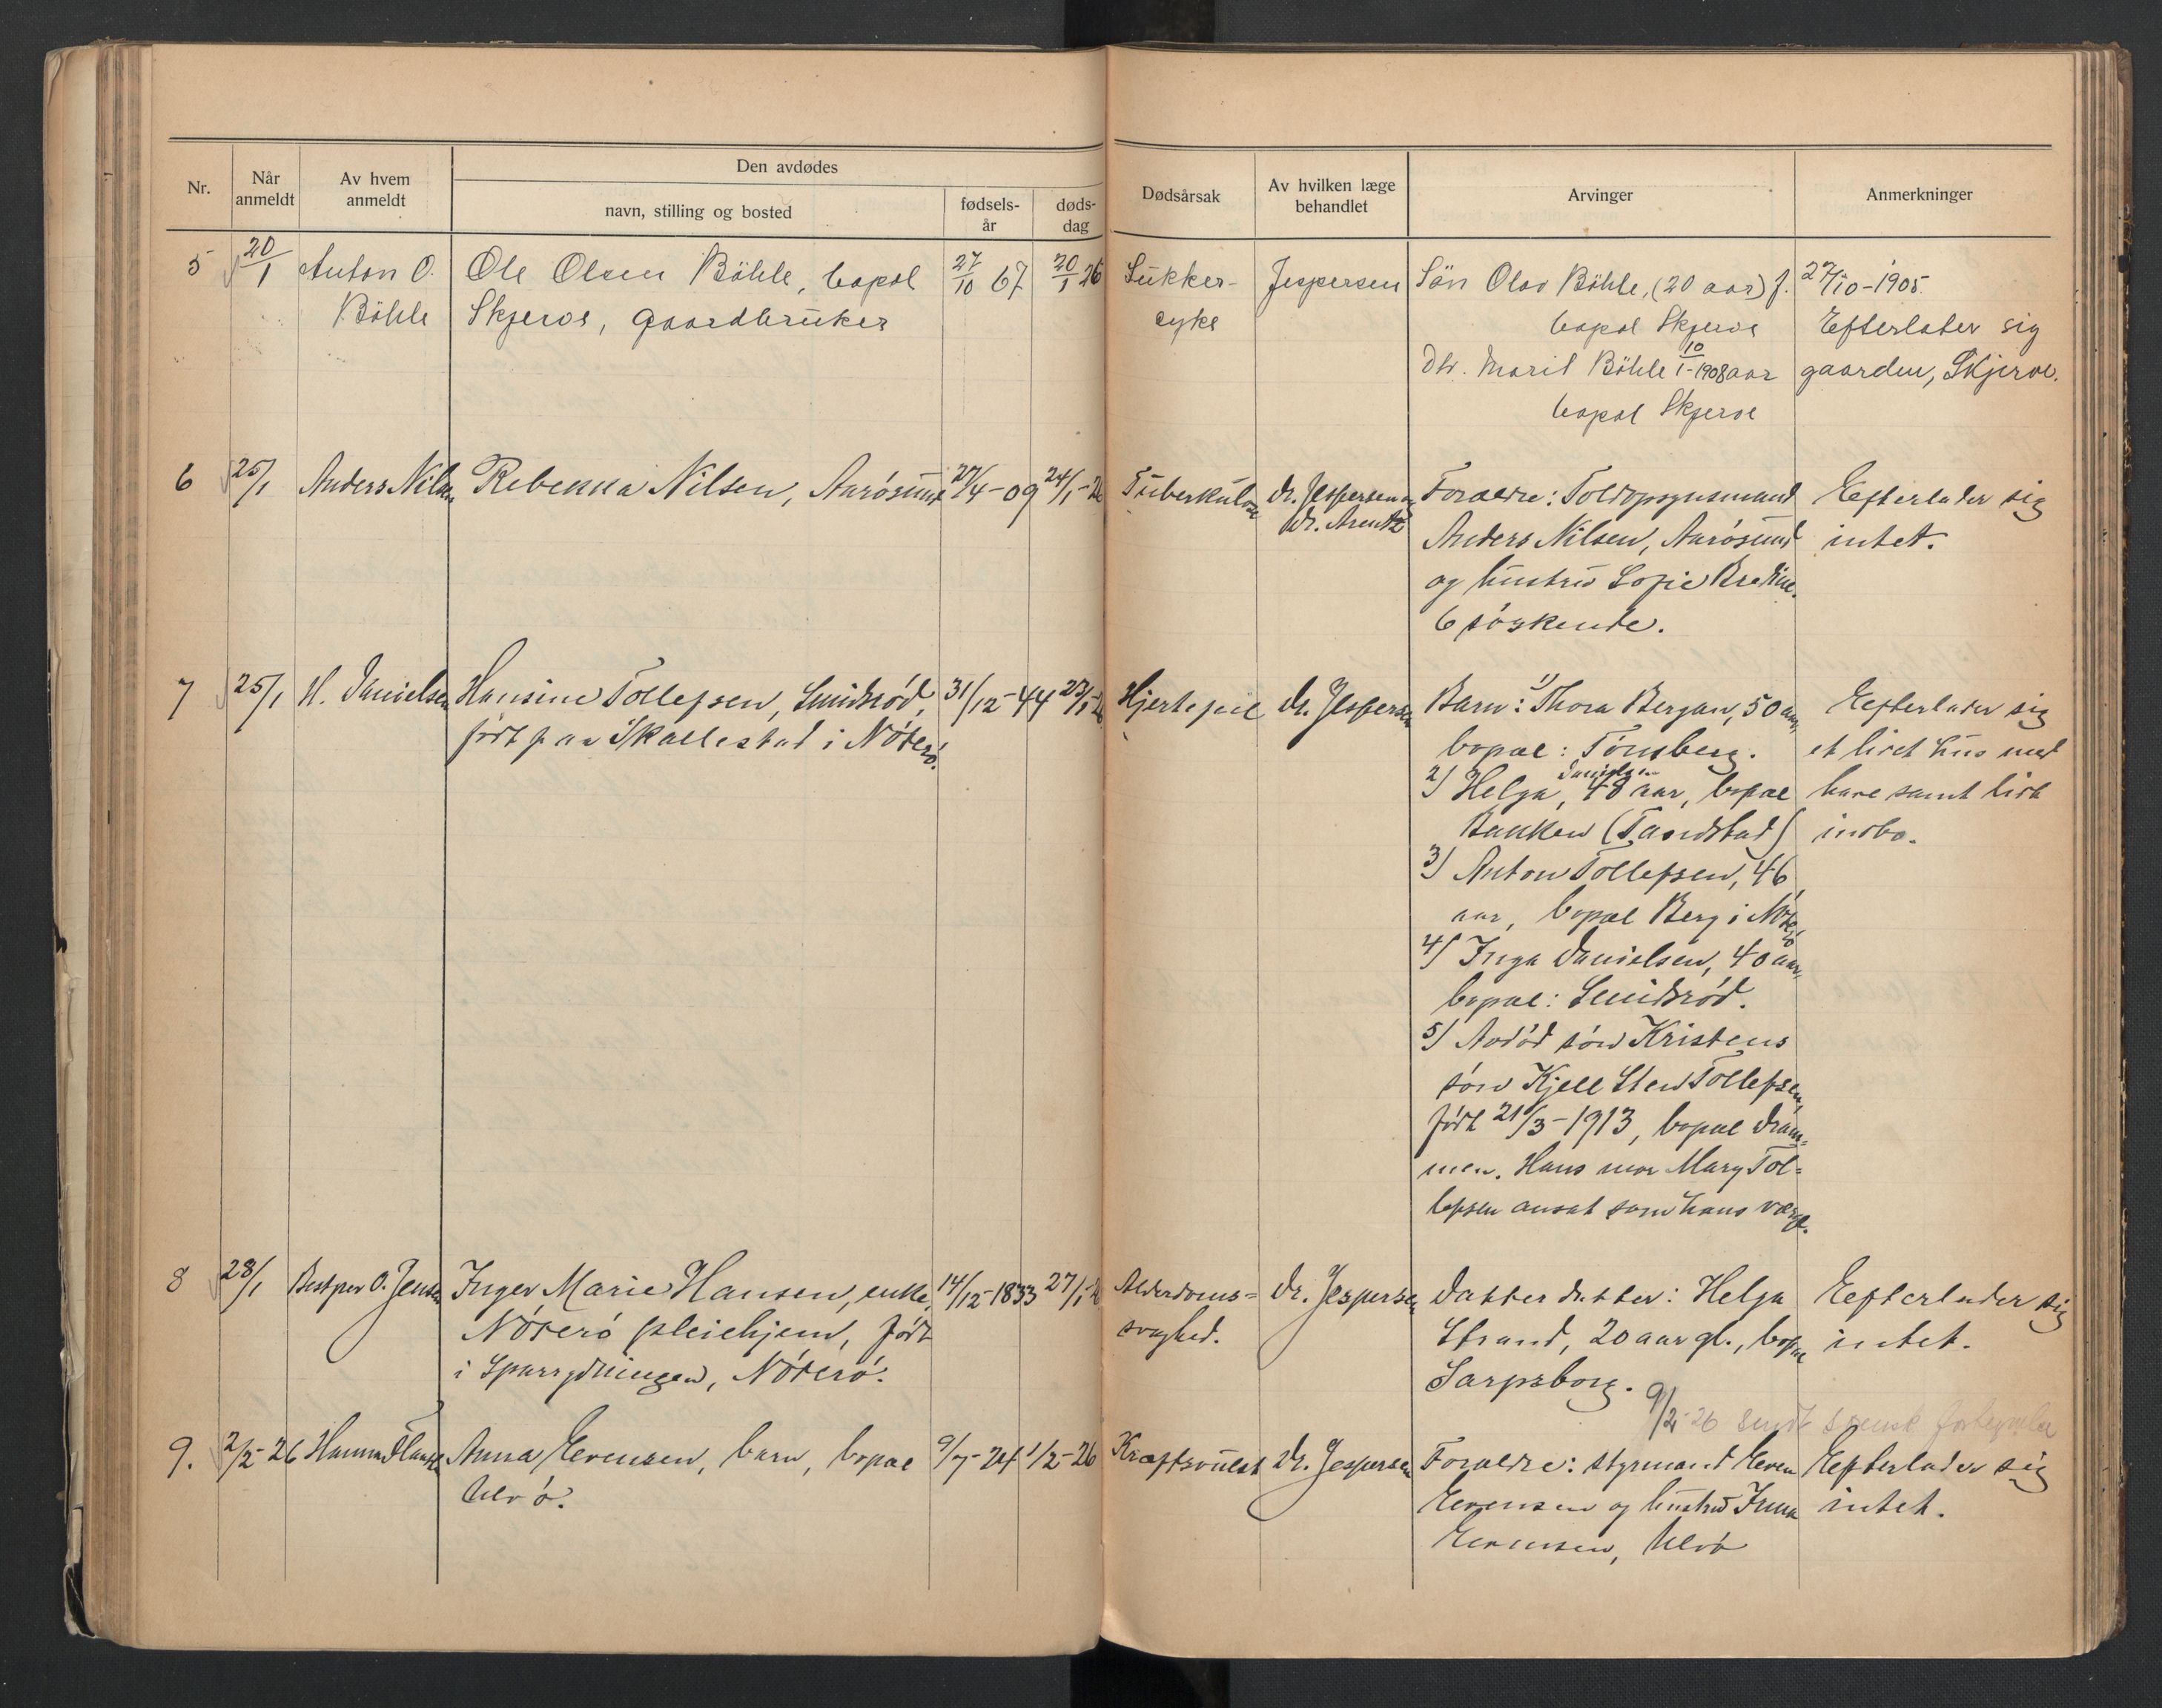 Nr.
Når anmeldt
Av hvem anmeldt
Den avdødes
navn, stilling og bosted
fødsels-år
døds-dag
Dødsårsak
Av hvilken læge behandlet
Arvinger
Anmerkninger
5
20/1
Anton O.
Böhle
Ole Olsen Böhle, bopel
Skjerve, gaardbruker
27/10 67
20/1 26
Sukker-
syke
Jespersen
Sön Olav Böhle, (20 aar) f. 27/10-1905
bopel Skjerve
Dtr. Marit Böhle 10/1-1908 aar
bopel Skjerve
Efterlater sig
gaarden, Skjerve.
6
25/1
Anders Nilsen
Rebekka Nilsen, Aarösund
27/4-09
24/1-26
Tuberkulose
dr. Jespersen og
dr. Arentz
Foraeldre: Toldopsynsmand
Anders Nilsen, Aarösund
og hustru Sofie Bredine.
6 söskende.
Efterlader sig
intet.
7
25/1
H. Danielsen
Hansine Tollefsen, Smidsröd,
född paa Skallestad i Nöterö.
31/12-44
23/1-26
Hjertefeil
dr. Jespersen
Barn: 1) Thora Bergan, 50 aar,
bopael: Tönsberg.
2) Helga Danielsen, 48 aar, bopael
Bakken (Tandstad)
3) Anton Tollefsen, 46
aar, bopael Berg i Nöterö
4) Inga Danielsen, 40 aar,
bopael: Smidsröd.
5) Avdöd sön Kristens
sön Kjell Sten Tollefsen,
född 21/3-1913, bopael Dram=
men. Hans mor Mary Tol=
lefsen ansat som hans værge.
Efterlader sig
et litet hus med
have samt litt
indbo.
8
28/1
Bestyrer O. Jensen
Inger Marie Hansen, enke,
Nöterö pleiehjem, född
i Sparrydningen, Nöterö.
14/12-1833
27/1-26
Alderdoms=
svaghed.
Dr. Jespersen
Datter datter: Helga
Strand, 20 aar gl., bopael
Sarpsborg.
Efterlader sig
intet.
9/2-26 sendt
9.
2/2-26
Anna Evensen, barn, bopael
Ulvö.
9/7-24
1/2-26
Kræftsvulst
Dr. Jespersen
Foraeldre: styrmand Even
Evensen og hustru Inna
Evensen, Ulvö
Efterlader sig
intet.